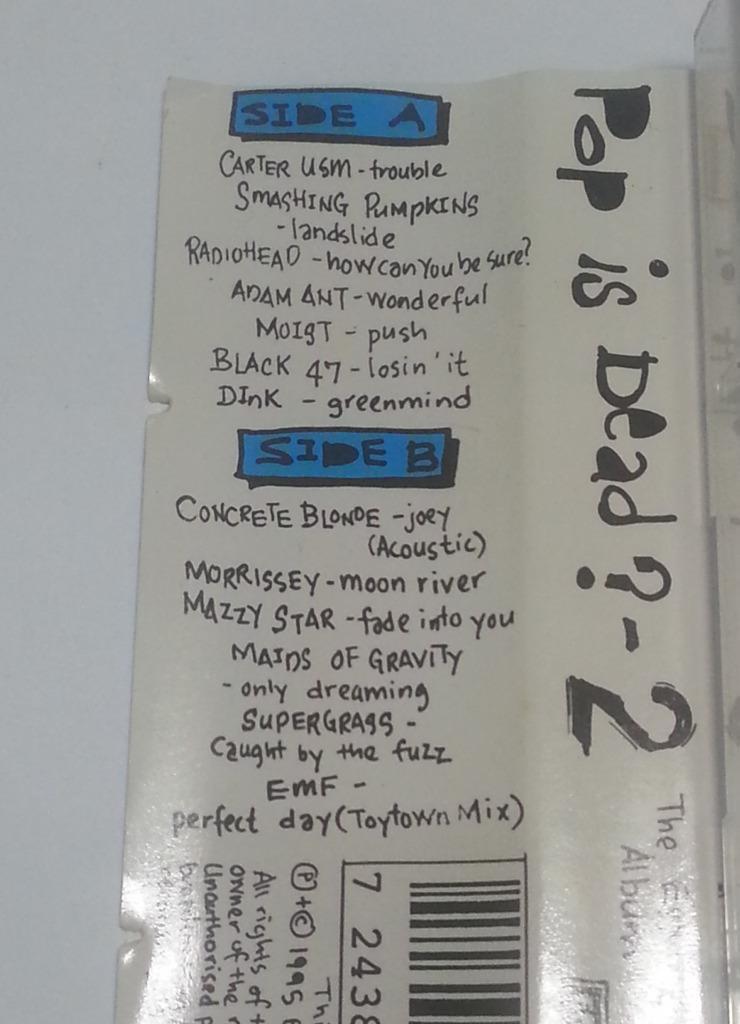 SIDE A
CARTER USM - trouble
SMASHING PUMPKINS
- landslide
RADIOHEAD - how can You be sure?
ADAM ANT - wonderful
MOIST - push
BLACK 47 - losin' it
DINK - greenmind
SIDE B
CONCRETE BLONDE - joey
(Acoustic)
MORRISSEY - moon river
MAZZY STAR - fade into you
MAIDS OF GRAVITY
- only dreaming
SUPERGRASS -
Caught by the fuzz
EMF -
perfect day (Toytown Mix)
Pop is Dead? - 2
The
Album
7 2438
℗+© 1995
All rights of
owner of the
Unauthorised